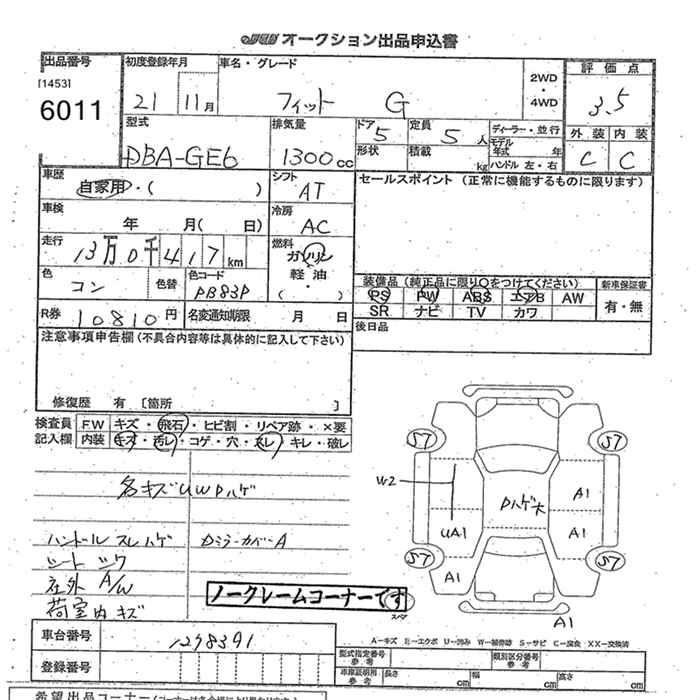 JU オークション出品申込書
出品番号 初度登録年月 車名・グレード 2WD・4WD 評価点
[1453]
6011 21 11月 フィット G 3.5
型式 排気量 ドア 5 定員 5人 ディーラー・並行 外装 内装
DBA-GE6 1300cc 形状 積載 kg モデル年式 年 ハンドル 左・右 C C
車歴 自家用・( ) シフト AT セールスポイント (正常に機能するものに限ります)
車検 年 月( 日) 冷房 AC
走行 13万0千417km 燃料 ガソリン
軽油
・( )
色 コン 色替 色コード PB83P
装備品 (純正品に限り○をつけてください) 新車保証書
PS PW ABS エアB AW 有・無
SR ナビ TV カワ
R券 10810円 名変通知期限 月 日
後日品
注意事項申告欄 (不具合内容等は具体的に記入して下さい)
修復歴 有 [箇所 ]
検査員 FW キズ・飛石・ヒビ割・リペア跡・×要
記入欄 内装 キズ・汚レ・コゲ・穴・スレ・キレ・破レ
各キズUWPハゲ
ハンドルスレハゲ Dミラーカバー A
シートシワ
社外 A/W
荷室内キズ
S7 S7
W2 Pハゲ大 A1
UA1 A1
S7 S7
A1
A1
ノークレームコーナーです
スペア
A―キズ E―エクボ U―凹み W―補修跡 S―サビ C―腐食 XX―交換済
車台番号 1298391
型式指定番号 参考 類別区分番号 参考
登録番号
車庫証明用 参考 長さ cm 幅 cm 高さ cm
希望出品コーナー